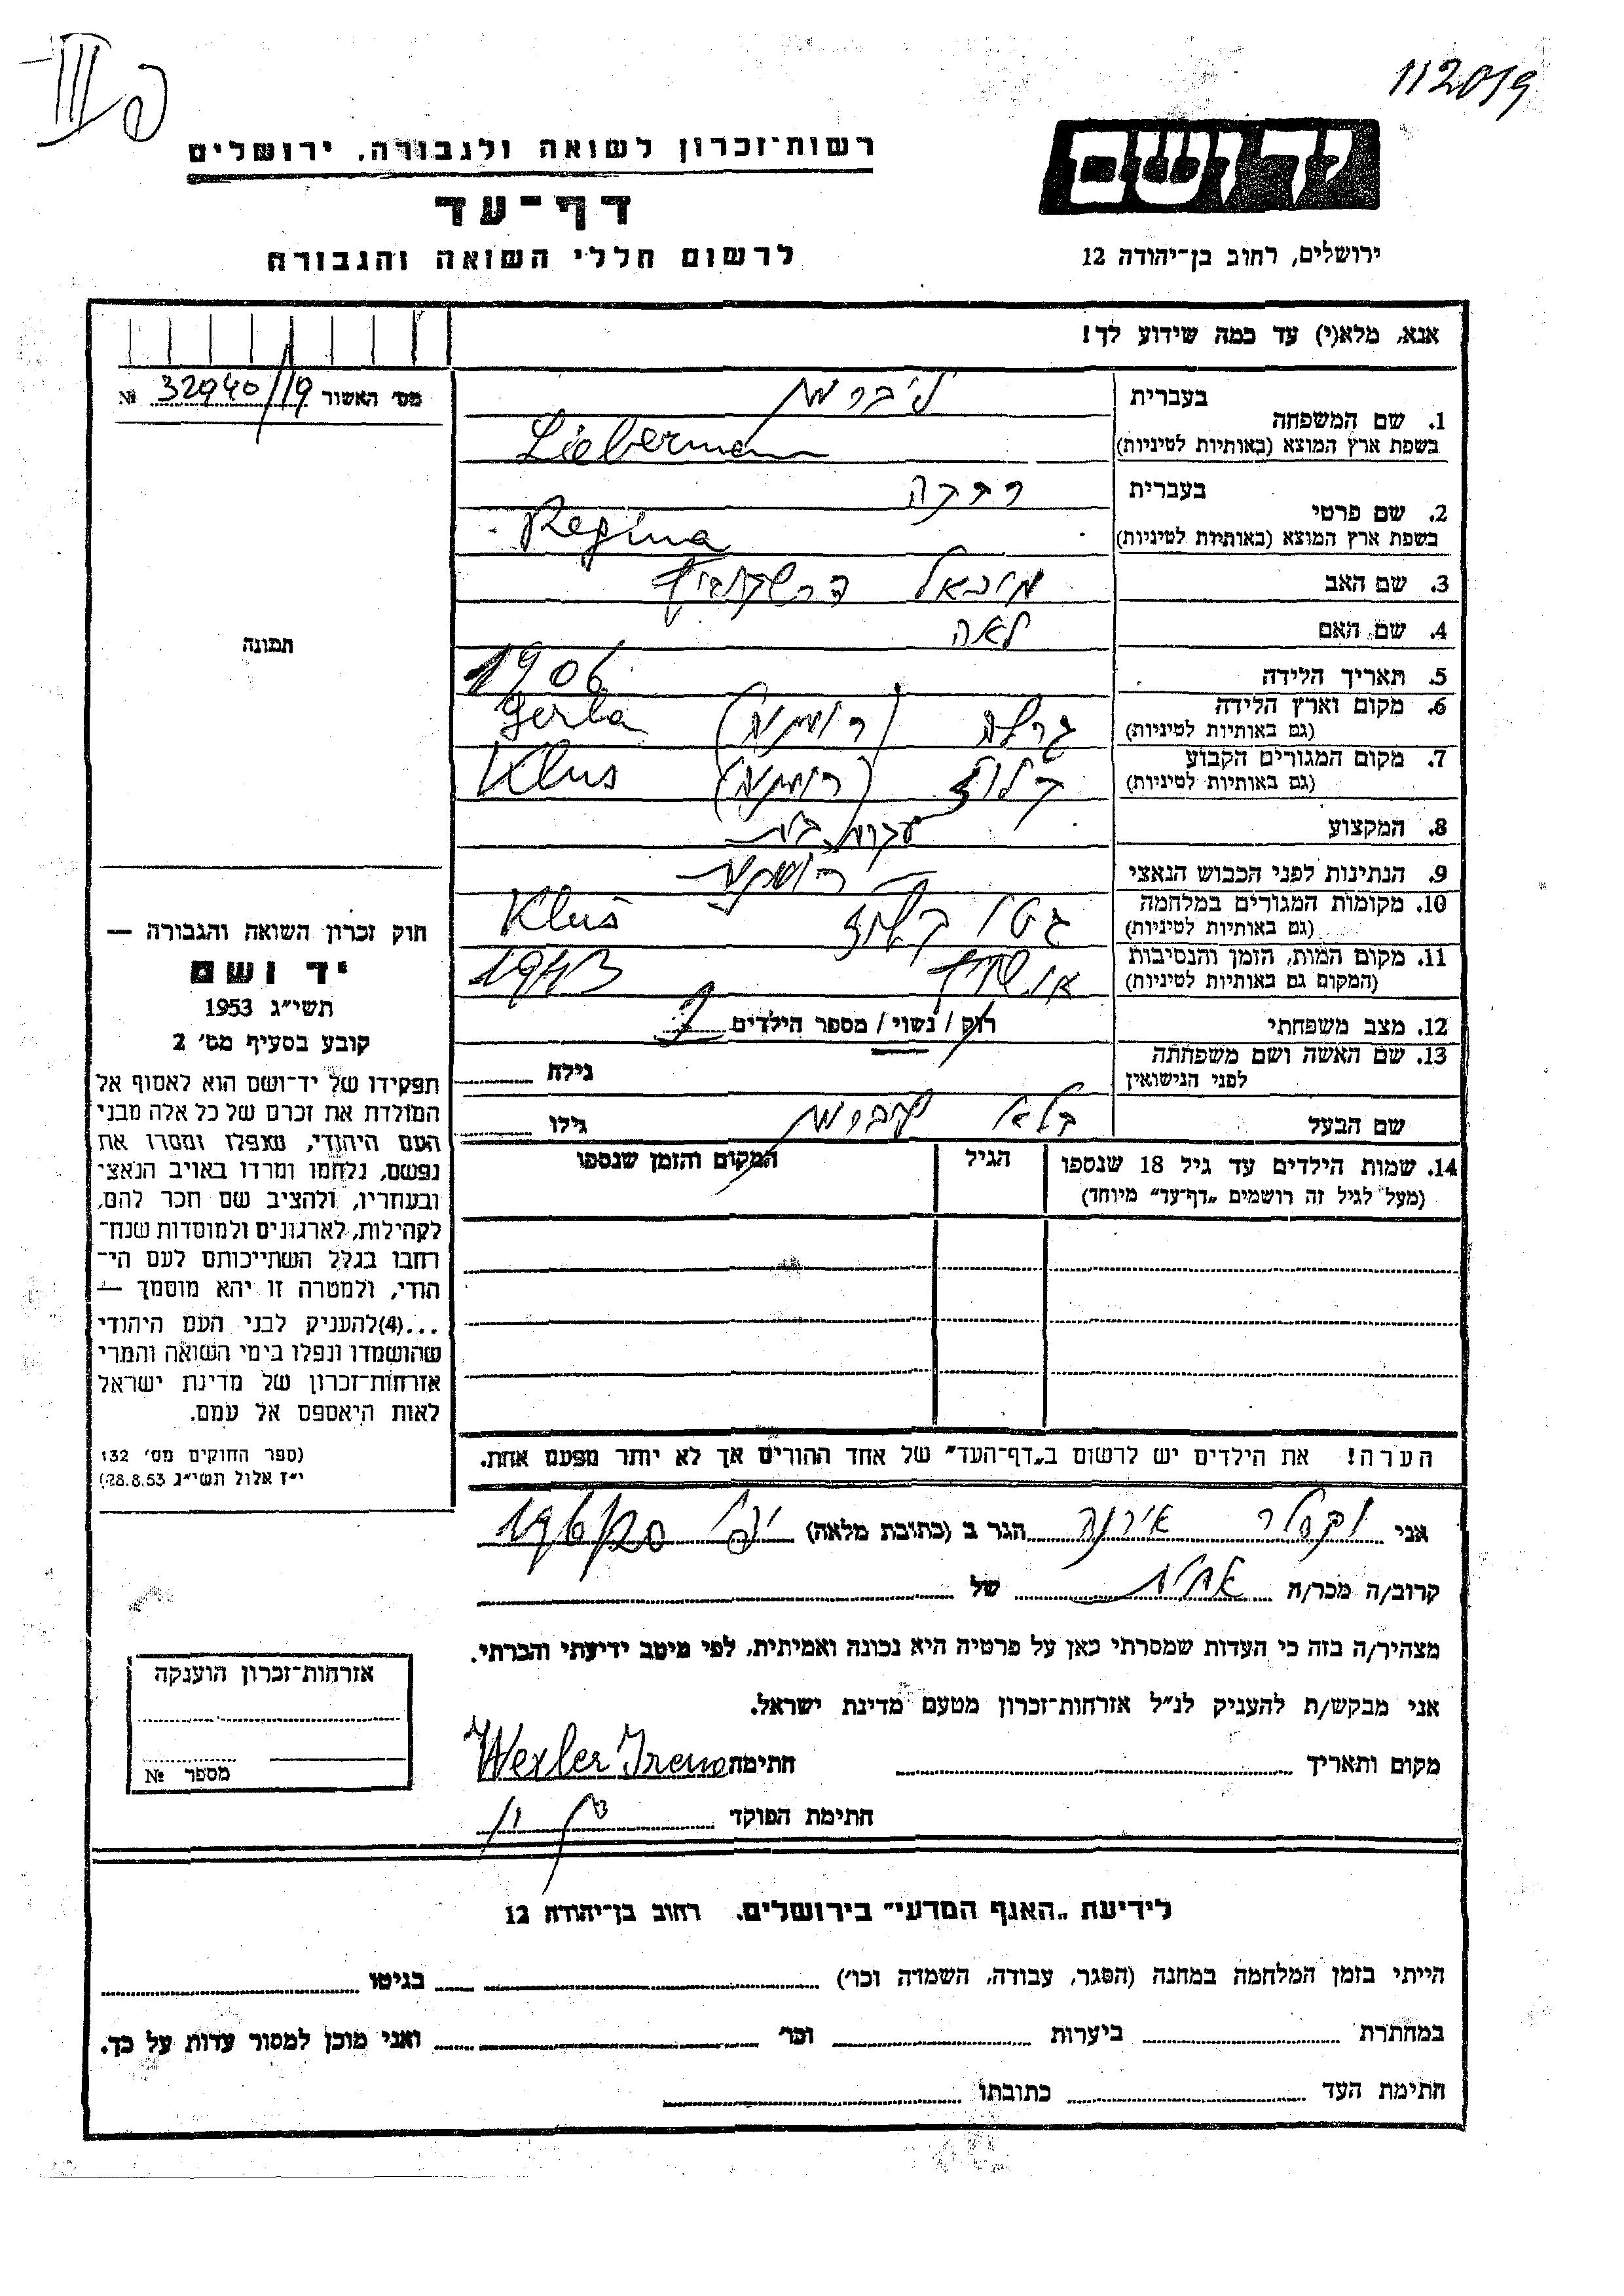 112019
רשות־זכרון לשואה ולגבורה, ירושלים
דף־עד
לרשום חללי השואה והגבורה
יד ושם
ירושלים, רחוב בן־יהודה 12
אנא, מלא(י) עד כמה שידוע לך!
מס׳ האשור 32940/19 №
תמונה
1. שם המשפחה בעברית ליברמן
בשפת ארץ המוצא (באותיות לטיניות) Lieberman
2. שם פרטי בעברית רבקה
בשפת ארץ המוצא (באותיות לטיניות) Regina
3. שם האב מיכאל
4. שם האם לאה
5. תאריך הלידה 1906
6. מקום וארץ הלידה
(גם באותיות לטיניות) גרלה (רומניה) Gerla
7. מקום המגורים הקבוע
(גם באותיות לטיניות) קלוז (רומניה) Klus
8. המקצוע עקרת בית
9. הנתינות לפני הכבוש הנאצי רומניה
10. מקומות המגורים במלחמה
(גם באותיות לטיניות) גטו קלוז Klus
11. מקום המות, הזמן והנסיבות
(המקום גם באותיות לטיניות) אושויץ 1943
12. מצב משפחתי רוק / נשוי / מספר הילדים
13. שם האשה ושם משפחתה
לפני הנישואין גילה
שם הבעל ליברמן גילו
14. שמות הילדים עד גיל 18 שנספו
(מעל לגיל זה רושמים „דף־עד״ מיוחד)
הגיל
המקום והזמן שנספו
הערה! את הילדים יש לרשום ב„דף־העד״ של אחד ההורים אך לא יותר מפעם אחת.
חוק זכרון השואה והגבורה —
יד ושם
תשי״ג 1953
קובע בסעיף מס׳ 2
תפקידו של יד־ושם הוא לאסוף אל
המולדת את זכרם של כל אלה מבני
העם היהודי, שנפלו ומסרו את
נפשם, נלחמו ומרדו באויב הנאצי
ובעוזריו, ולהציב שם וזכר להם,
לקהילות, לארגונים ולמוסדות שנח־
רבו בגלל השתייכותם לעם הי־
הודי, ולמטרה זו יהא מוסמך —
...(4) להעניק לבני העם היהודי
שהושמדו ונפלו בימי השואה והמרי
אזרחות־זכרון של מדינת ישראל
לאות היאספם אל עמם.
(ספר החוקים מס׳ 132
י״ז אלול תשי״ג 28.8.53)
אני וקסלר אירנה הגר ב (כתובת מלאה) יפו 196/20
קרוב/ה מכר/ה אחות של
מצהיר/ה בזה כי העדות שמסרתי כאן על פרטיה היא נכונה ואמיתית, לפי מיטב ידיעתי והכרתי.
אני מבקש/ת להעניק לנ״ל אזרחות־זכרון מטעם מדינת ישראל.
מקום ותאריך חתימה Wexler Irena
חתימת הפוקד
אזרחות־זכרון הוענקה
מספר №
לידיעת „האגף המדעי״ בירושלים, רחוב בן־יהודה 12
הייתי בזמן המלחמה במחנה (הסגר, עבודה, השמדה וכו׳) בגיטו
במחתרת ביערות וכו׳ ואני מוכן למסור עדות על כך.
חתימת העד כתובתו